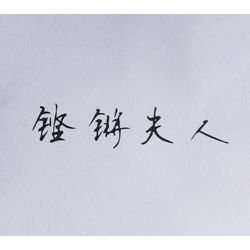 铿锵夫人